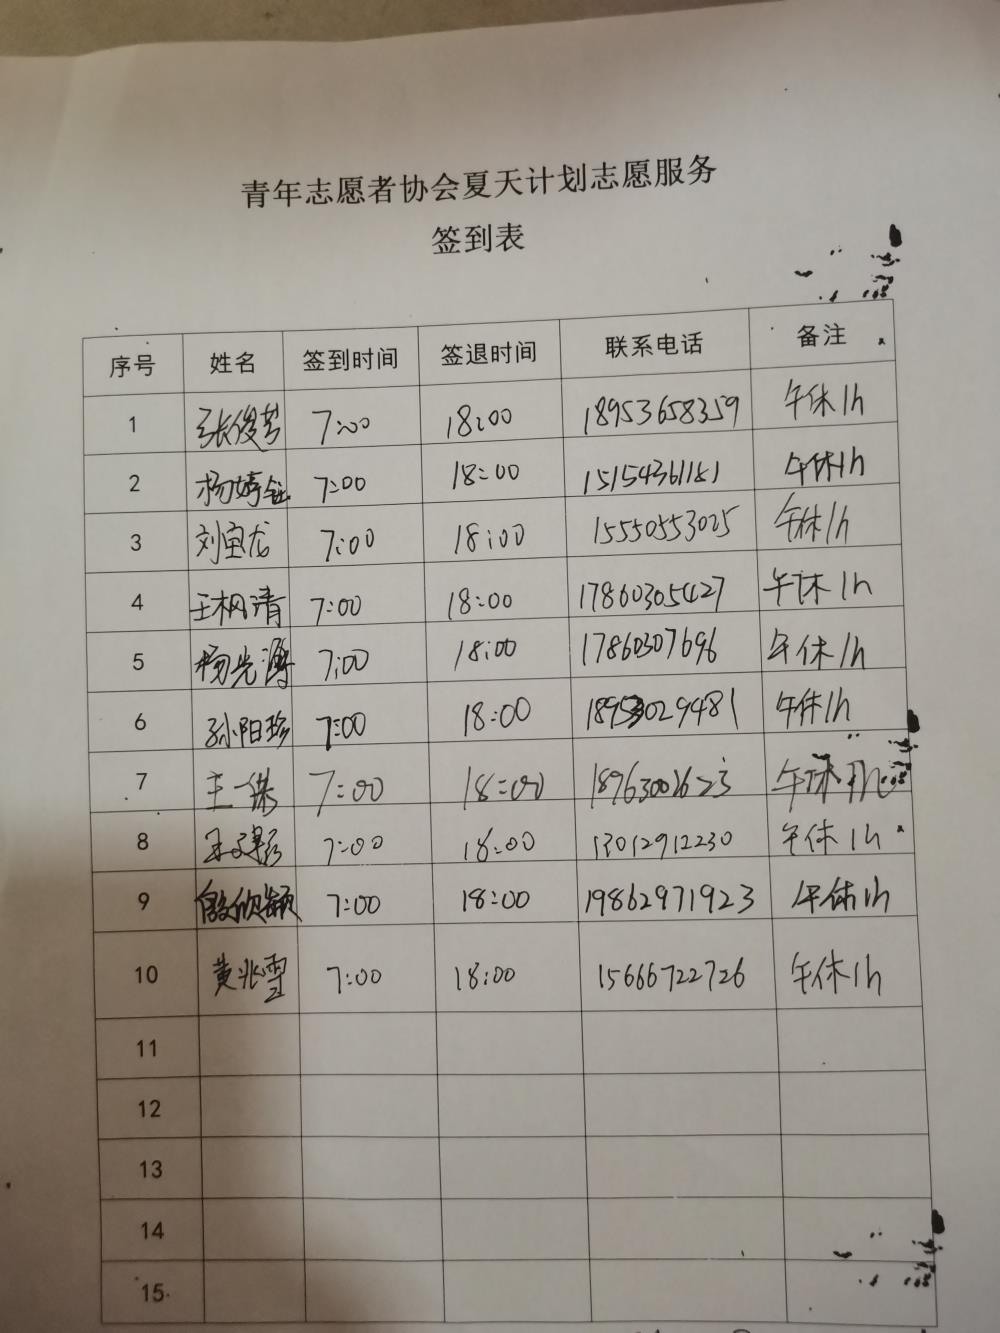 青年志愿者协会夏天计划志愿服务
签到表
序号 姓名 签到时间 签退时间 联系电话 备注
1 张俊芳 7:00 18:00 18953658359 午休1h
2 杨婷钰 7:00 18:00 15154361181 午休1h
3 刘宝龙 7:00 18:00 15550553025 午休1h
4 王枫清 7:00 18:00 17860305427 午休1h
5 杨光 7:00 18:00 17860307696 午休1h
6 孙阳珍 7:00 18:00 18953029481 午休1h
7 王一姝 7:00 18:00 18963002623 午休1h
8 7:00 18:00 13012912230 午休1h
9 殷欣颖 7:00 18:00 19862971923 午休1h
10 黄兆雪 7:00 18:00 15666722726 午休1h
11
12
13
14
15